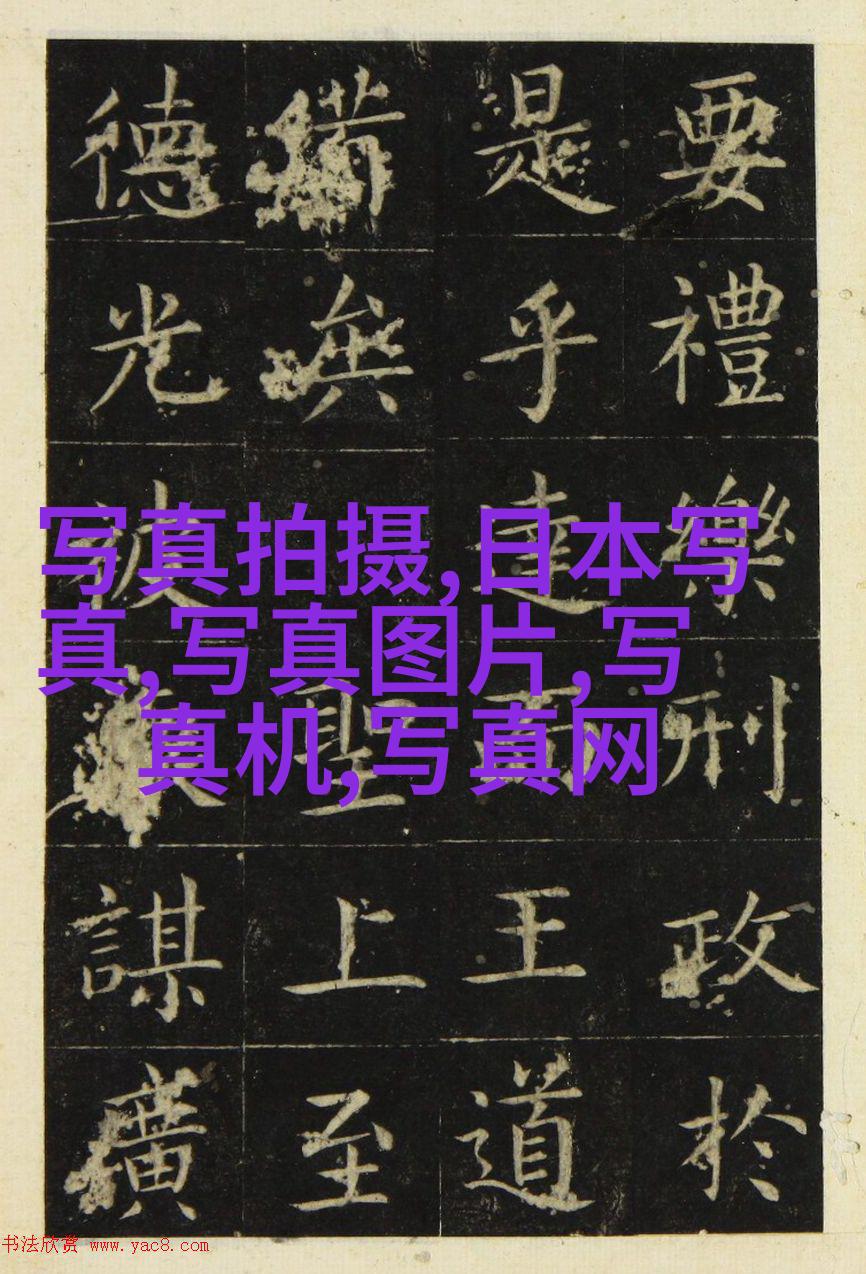 要禮樂刑政於
是乎達而王道
備無聖上至
德光被謀廣
写真拍摄,日本写
真,写真图片,写
真机,写真网
书法欣赏 www.yac8.com